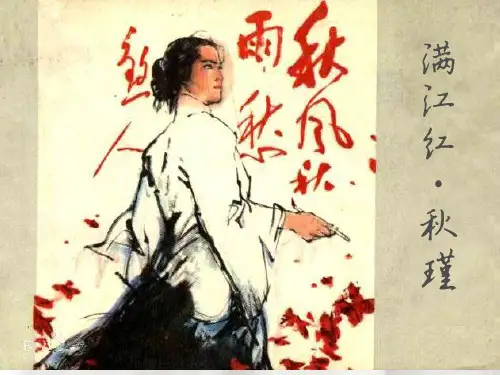 满江红·秋瑾
秋风秋
雨愁
煞人